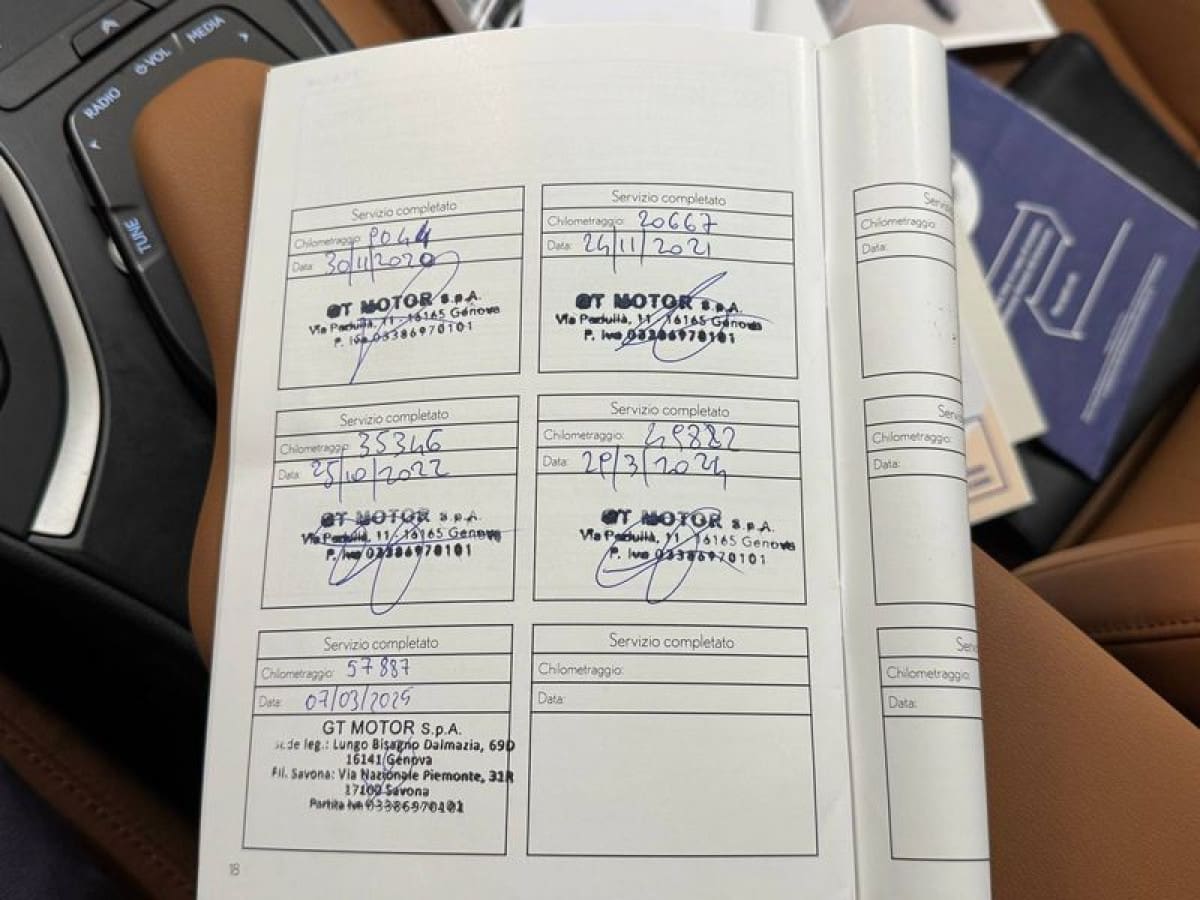 RADIO
VOL
MEDIA
TUNE
Servizio completato
Chilometraggio: 9044
Data: 30/11/2020
GT MOTOR S.p.A.
Via Pedullà, 11 - 16165 Genova
P. Iva 03386970101
Servizio completato
Chilometraggio: 20667
Data: 24/11/2021
GT MOTOR S.p.A.
Via Pedullà, 11 - 16165 Genova
P. Iva 03386970101
Servizio completato
Chilometraggio: 35346
Data: 25/10/2022
GT MOTOR S.p.A.
Via Pedullà, 11 - 16165 Genova
P. Iva 03386970101
Servizio completato
Chilometraggio: 49882
Data: 29/3/2024
GT MOTOR S.p.A.
Via Pedullà, 11 - 16165 Genova
P. Iva 03386970101
Servizio completato
Chilometraggio: 57887
Data: 07/03/2025
GT MOTOR S.p.A.
Sede leg.: Lungo Bisagno Dalmazia, 69D
16141 Genova
Fil. Savona: Via Nazionale Piemonte, 31R
17100 Savona
Partita Iva 03386970101
Servizio completato
Chilometraggio:
Data:
18
Servi
Chilometraggio:
Data:
Servi
Chilometraggio:
Data:
Servi
Chilometraggio:
Data: